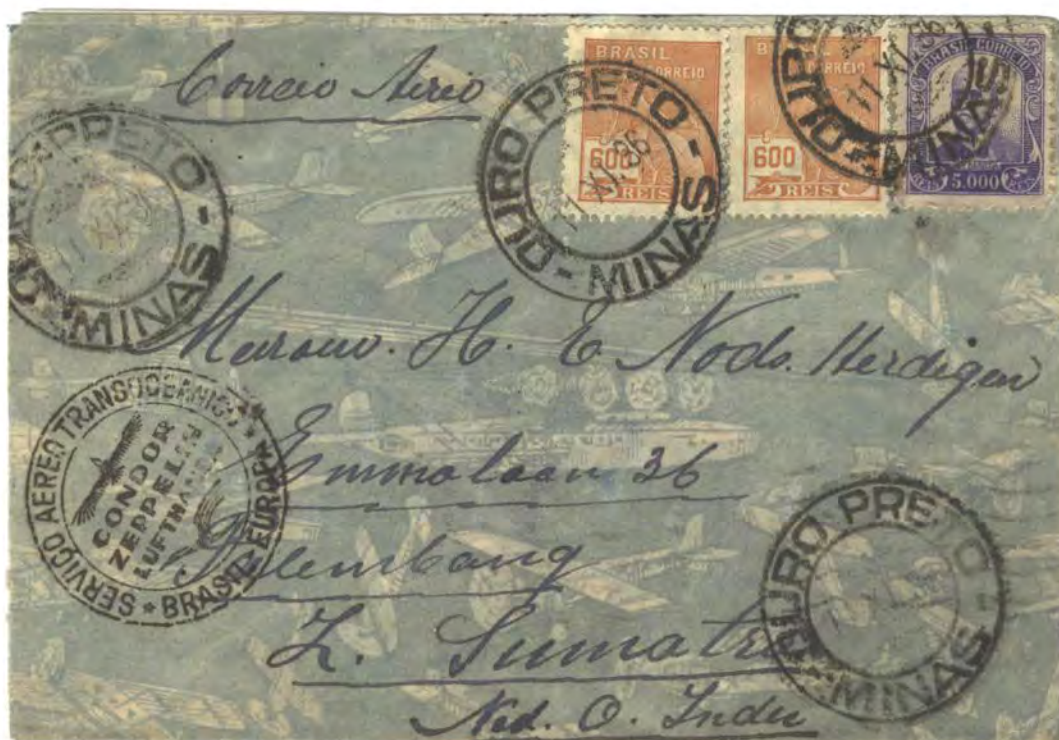 Correio Aerio
BRASIL
CORREIO
600
REIS
BRASIL
CORREIO
600
REIS
BRASIL CORREIO
REIS 5.000 REIS
OURO PRETO - MINAS -
11 XI 36
OURO PRETO - MINAS -
OURO - MINAS
11 XI 36
H. E. Nods. Herdigen
Emmalaan 36
Palembang
Z. Sumatra
Ned. O. Indië
SERVIÇO AEREO TRANSOCEANICO * BRASIL-EUROPA
CONDOR
ZEPPELIN
LUFTHANSA
OURO PRETO - MINAS -